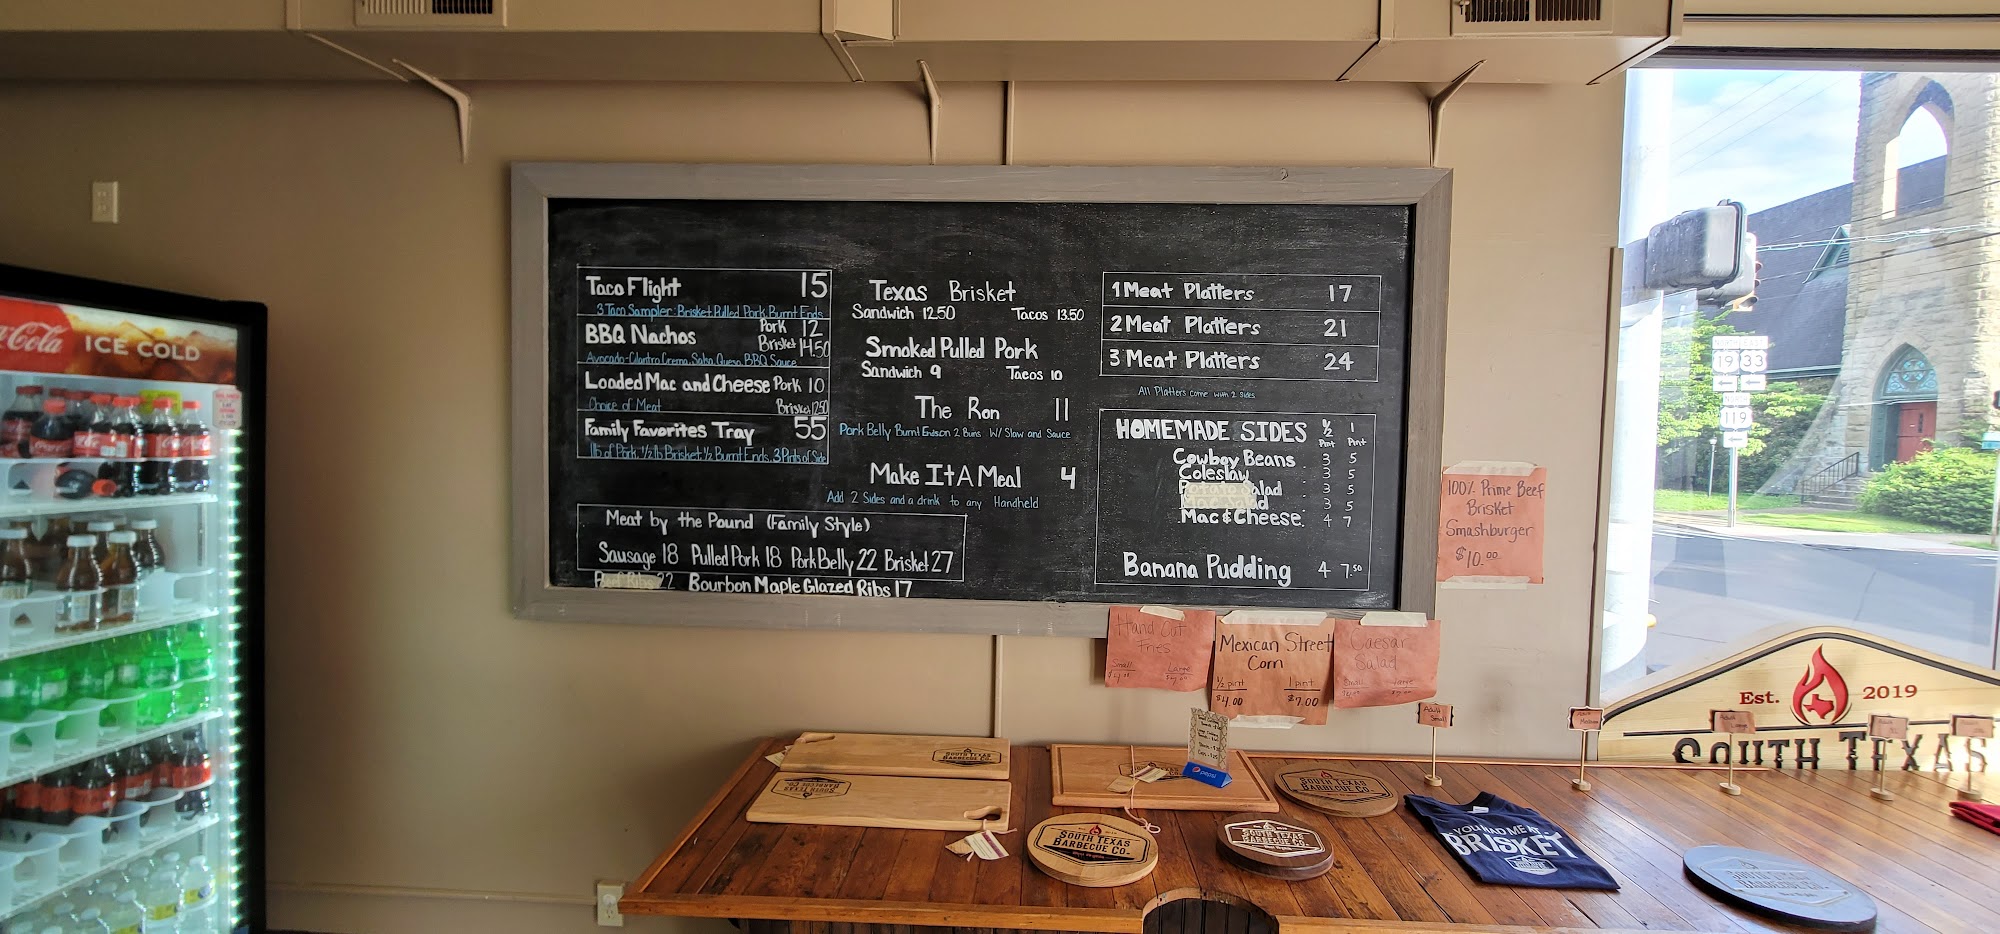 Coca-Cola
ICE COLD
Taco Flight 15
3 Taco Sampler: Brisket, Pulled Pork, Burnt Ends
BBQ Nachos Pork 12
Brisket 14.50
Avocado-Cilantro Crema, Salsa, Queso, BBQ Sauce
Loaded Mac and Cheese Pork 10
Choice of Meat Brisket 12.50
Family Favorites Tray 55
1lb of Pork, 1/2 lb Brisket, 1/2 Burnt Ends, 3 Pints of Side
Texas Brisket
Sandwich 12.50 Tacos 13.50
Smoked Pulled Pork
Sandwich 9 Tacos 10
The Ron 11
Pork Belly Burnt Ends on 2 Buns W/ Slaw and Sauce
Make It A Meal 4
Add 2 Sides and a drink to any Handheld
Meat by the Pound (Family Style)
Sausage 18 Pulled Pork 18 Pork Belly 22 Brisket 27
Beef Ribs 22 Bourbon Maple Glazed Ribs 17
1 Meat Platters 17
2 Meat Platters 21
3 Meat Platters 24
All Platters come with 2 sides
HOMEMADE SIDES 1/2 Pint 1 Pint
Cowboy Beans 3 5
Coleslaw 3 5
Potato Salad 3 5
3 5
Mac & Cheese 4 7
Banana Pudding 4 7.50
100% Prime Beef
Brisket
Smashburger
$10.00
Hand Cut
Fries
Small Large
Mexican Street
Corn
1/2 pint 1 pint
$4.00 $7.00
Caesar
Salad
Small Large
NORTH EAST
19 33
NORTH
119
Est. 2019
SOUTH TEXAS
Adult
Small
pepsi
SOUTH TEXAS
BARBECUE CO.
SOUTH TEXAS
BARBECUE CO.
SOUTH TEXAS
BARBECUE CO.
SOUTH TEXAS
BARBECUE CO.
West Virginia
SOUTH TEXAS
BARBECUE CO.
YOU HAD ME AT
BRISKET
SOUTH TEXAS
BARBECUE CO.